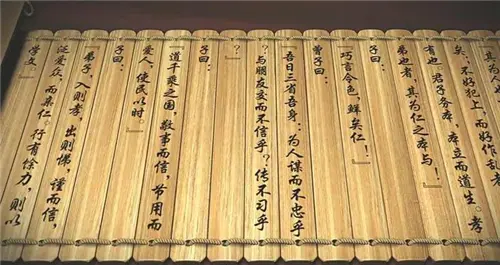 其为人
矣；不好犯上，而好作乱者
有也。君子务本，本立而道生。孝
弟也者，其为仁之本与！』
子曰：
『巧言令色，鲜矣仁！』
曾子曰：
『吾日三省吾身：为人谋而不忠乎
？与朋友交而不信乎？传不习乎
？』
子曰：
『道千乘之国，敬事而信，节用而
爱人，使民以时。』
子曰：
『弟子，入则孝，出则悌，谨而信，
泛爱众，而亲仁。行有馀力，则以
学文。』